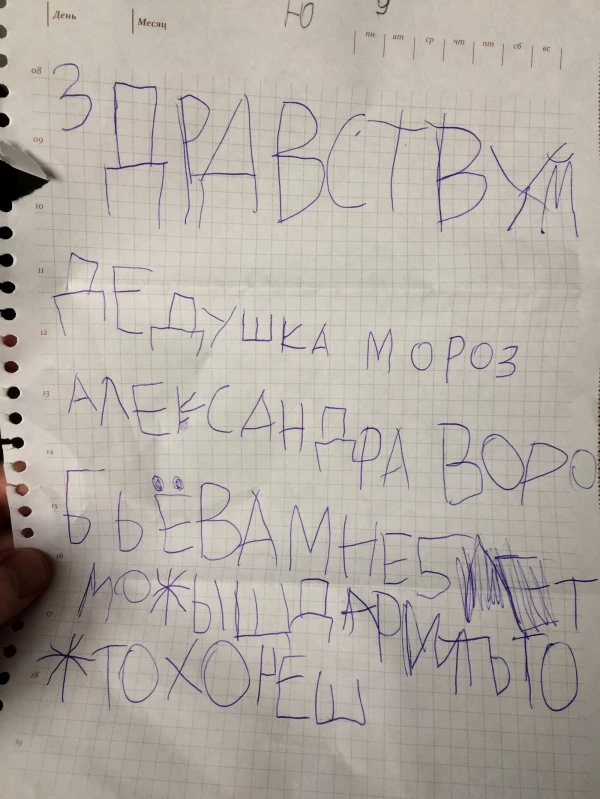 День Месяц
пн вт ср чт пт сб вс
08 ЗДРАВСТВУЙ
09
10
11 ДЕДУШКА МОРОЗ
12
13 АЛЕКСАНДРА ВОРО
14
15 БЬЁВА МНЕ 5 Т
16 МОЖЫШ ДАРИТЬ ТО
17
18 ЖТО ХОЧЕШ
19